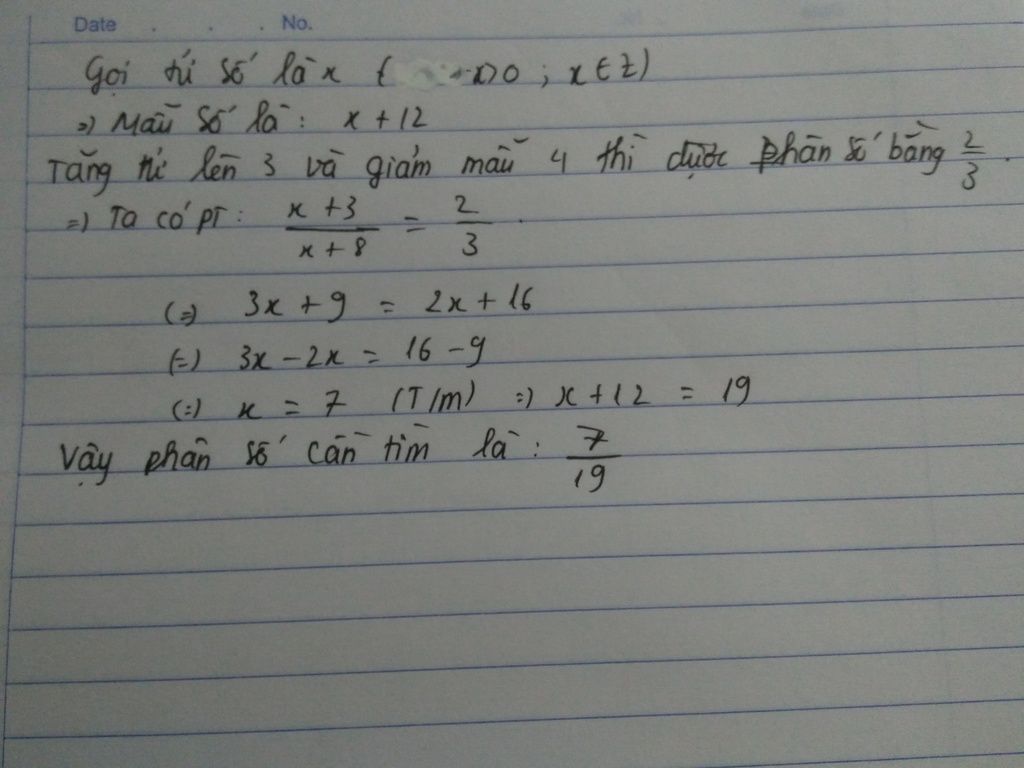 Date . . . No.
Gọi tử số là x ( x>0 ; x∈Z)
=) Mẫu số là: x + 12
Tăng tử lên 3 và giảm mẫu 4 thì được phân số bằng 2/3.
=) Ta có PT: (x + 3)/(x + 8) = 2/3.
(=) 3x + 9 = 2x + 16
(=) 3x - 2x = 16 - 9
(=) x = 7 (T/m) =) x + 12 = 19
Vậy phân số cần tìm là: 7/19